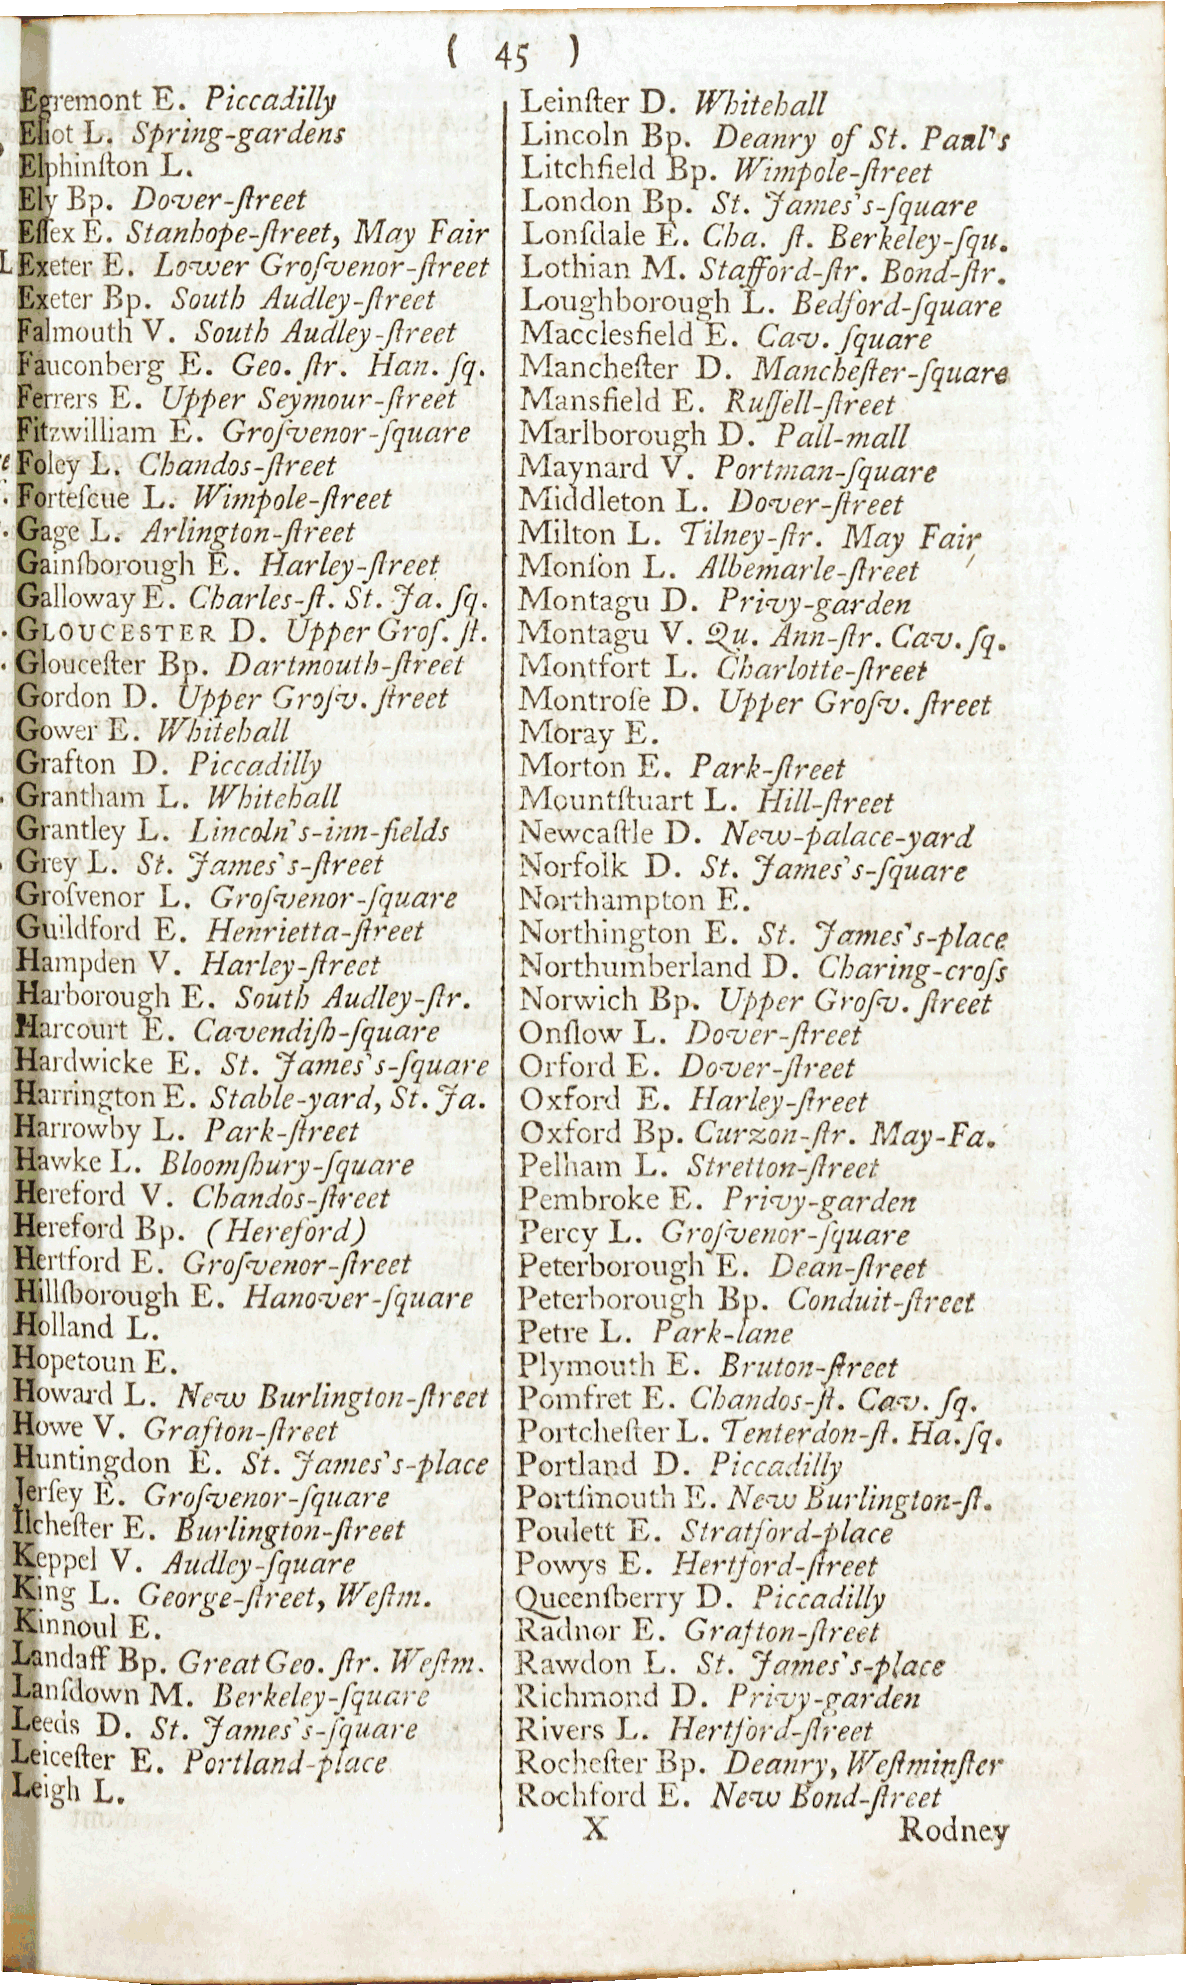 ( 45 )
Egremont E. Piccadilly
Eliot L. Spring-gardens
Elphinſton L.
Ely Bp. Dover-ſtreet
Eſſex E. Stanhope-ſtreet, May Fair
Exeter E. Lower Groſvenor-ſtreet
Exeter Bp. South Audley-ſtreet
Falmouth V. South Audley-ſtreet
Fauconberg E. Geo. ſtr. Han. ſq.
Ferrers E. Upper Seymour-ſtreet
Fitzwilliam E. Groſvenor-ſquare
Foley L. Chandos-ſtreet
Forteſcue L. Wimpole-ſtreet
Gage L. Arlington-ſtreet
Gainſborough E. Harley-ſtreet
Galloway E. Charles-ſt. St. Ja. ſq.
GLOUCESTER D. Upper Groſ. ſt.
Glouceſter Bp. Dartmouth-ſtreet
Gordon D. Upper Groſv. ſtreet
Gower E. Whitehall
Grafton D. Piccadilly
Grantham L. Whitehall
Grantley L. Lincoln's-inn-fields
Grey L. St. James's-ſtreet
Groſvenor L. Groſvenor-ſquare
Guildford E. Henrietta-ſtreet
Hampden V. Harley-ſtreet
Harborough E. South Audley-ſtr.
Harcourt E. Cavendiſh-ſquare
Hardwicke E. St. James's-ſquare
Harrington E. Stable-yard, St. Ja.
Harrowby L. Park-ſtreet
Hawke L. Bloomſbury-ſquare
Hereford V. Chandos-ſtreet
Hereford Bp. (Hereford)
Hertford E. Groſvenor-ſtreet
Hillſborough E. Hanover-ſquare
Holland L.
Hopetoun E.
Howard L. New Burlington-ſtreet
Howe V. Grafton-ſtreet
Huntingdon E. St. James's-place
Jerſey E. Groſvenor-ſquare
Ilcheſter E. Burlington-ſtreet
Keppel V. Audley-ſquare
King L. George-ſtreet, Weſtm.
Kinnoul E.
Landaff Bp. Great Geo. ſtr. Weſtm.
Lanſdown M. Berkeley-ſquare
Leeds D. St. James's-ſquare
Leiceſter E. Portland-place
Leigh L.
Leinſter D. Whitehall
Lincoln Bp. Deanry of St. Paul's
Litchfield Bp. Wimpole-ſtreet
London Bp. St. James's-ſquare
Lonſdale E. Cha. ſt. Berkeley-ſqu.
Lothian M. Stafford-ſtr. Bond-ſtr.
Loughborough L. Bedford-ſquare
Macclesfield E. Cav. ſquare
Mancheſter D. Mancheſter-ſquare
Mansfield E. Ruſſell-ſtreet
Marlborough D. Pall-mall
Maynard V. Portman-ſquare
Middleton L. Dover-ſtreet
Milton L. Tilney-ſtr. May Fair
Monſon L. Albemarle-ſtreet
Montagu D. Privy-garden
Montagu V. Qu. Ann-ſtr. Cav. ſq.
Montfort L. Charlotte-ſtreet
Montroſe D. Upper Groſv. ſtreet
Moray E.
Morton E. Park-ſtreet
Mountſtuart L. Hill-ſtreet
Newcaſtle D. New-palace-yard
Norfolk D. St. James's-ſquare
Northampton E.
Northington E. St. James's-place
Northumberland D. Charing-croſs
Norwich Bp. Upper Groſv. ſtreet
Onſlow L. Dover-ſtreet
Orford E. Dover-ſtreet
Oxford E. Harley-ſtreet
Oxford Bp. Curzon-ſtr. May-Fa.
Pelham L. Stretton-ſtreet
Pembroke E. Privy-garden
Percy L. Groſvenor-ſquare
Peterborough E. Dean-ſtreet
Peterborough Bp. Conduit-ſtreet
Petre L. Park-lane
Plymouth E. Bruton-ſtreet
Pomfret E. Chandos-ſt. Cav. ſq.
Portcheſter L. Tenterdon-ſt. Ha. ſq.
Portland D. Piccadilly
Portſmouth E. New Burlington-ſt.
Poulett E. Stratford-place
Powys E. Hertford-ſtreet
Queenſberry D. Piccadilly
Radnor E. Grafton-ſtreet
Rawdon L. St. James's-place
Richmond D. Privy-garden
Rivers L. Hertford-ſtreet
Rocheſter Bp. Deanry, Weſtminſter
Rochford E. New Bond-ſtreet
X Rodney